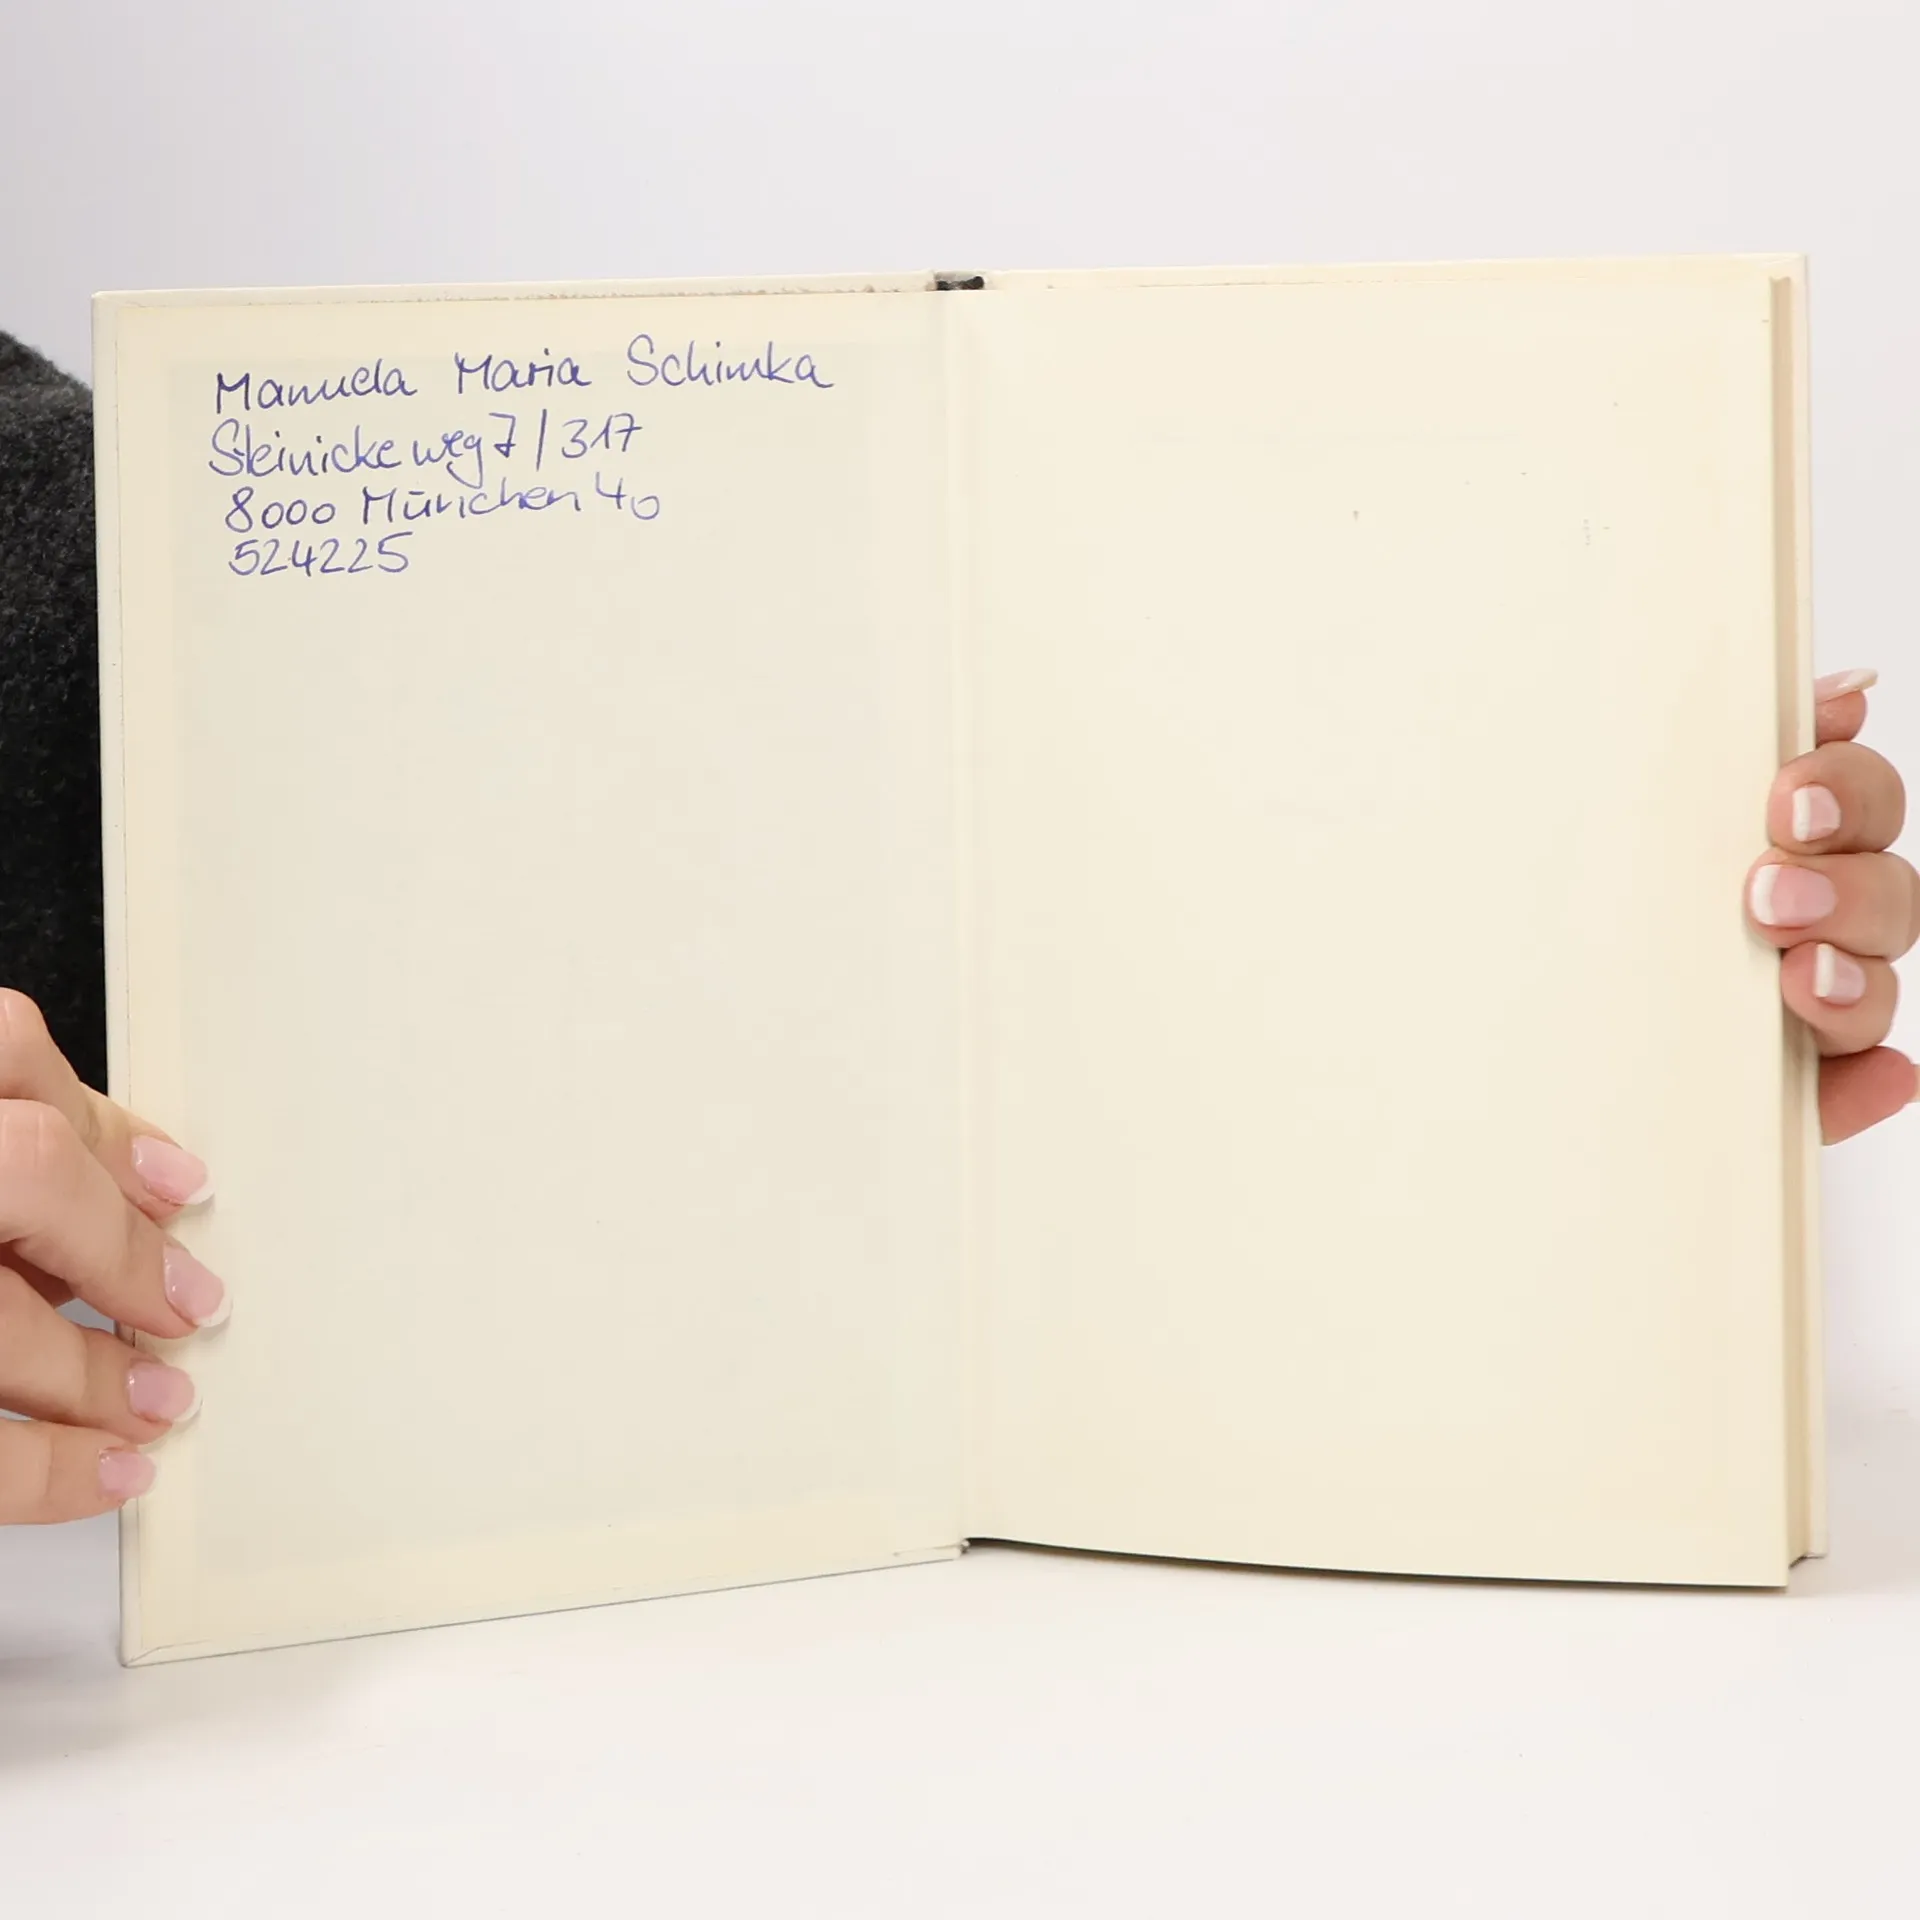 Manuela Maria Schimka
Steinickeweg 7/317
8000 München 40
524225